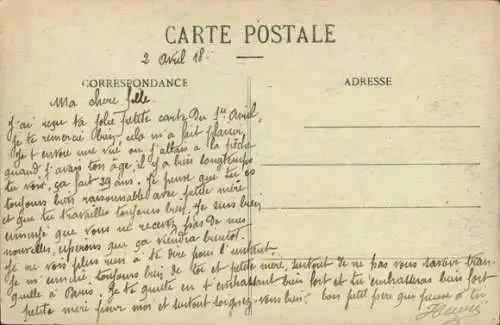 CARTE POSTALE
2 Avril 18.
CORRESPONDANCE
ADRESSE
Ma chere fille
J'ai reçu ta jolie petite carte du 1er Avril,
Je te remercie bien, cela m'a fait plaisir,
Je t'envoie une vue où j'allais a la pêche
quand j'avais ton âge, il y a bien longtemps
tu vois, ça fait 29 ans. Je pense que tu es
toujours bien raisonnable avec petite mère
et que tu travailles toujours bien. Je suis bien
ennuyé que vous ne recevez pas de mes
nouvelles, esperons que ça viendra bientot.
Je ne vois plus rien à te dire pour l'instant.
Je m'ennuie toujours bien de toi et petite mère, surtout de ne pas vous savoir tran-
quille à Paris. Je te quitte en t'embrassant bien fort et tu embrasseras bien fort
petite mère pour moi et surtout soignez-vous bien. ton petit père qui pense à toi